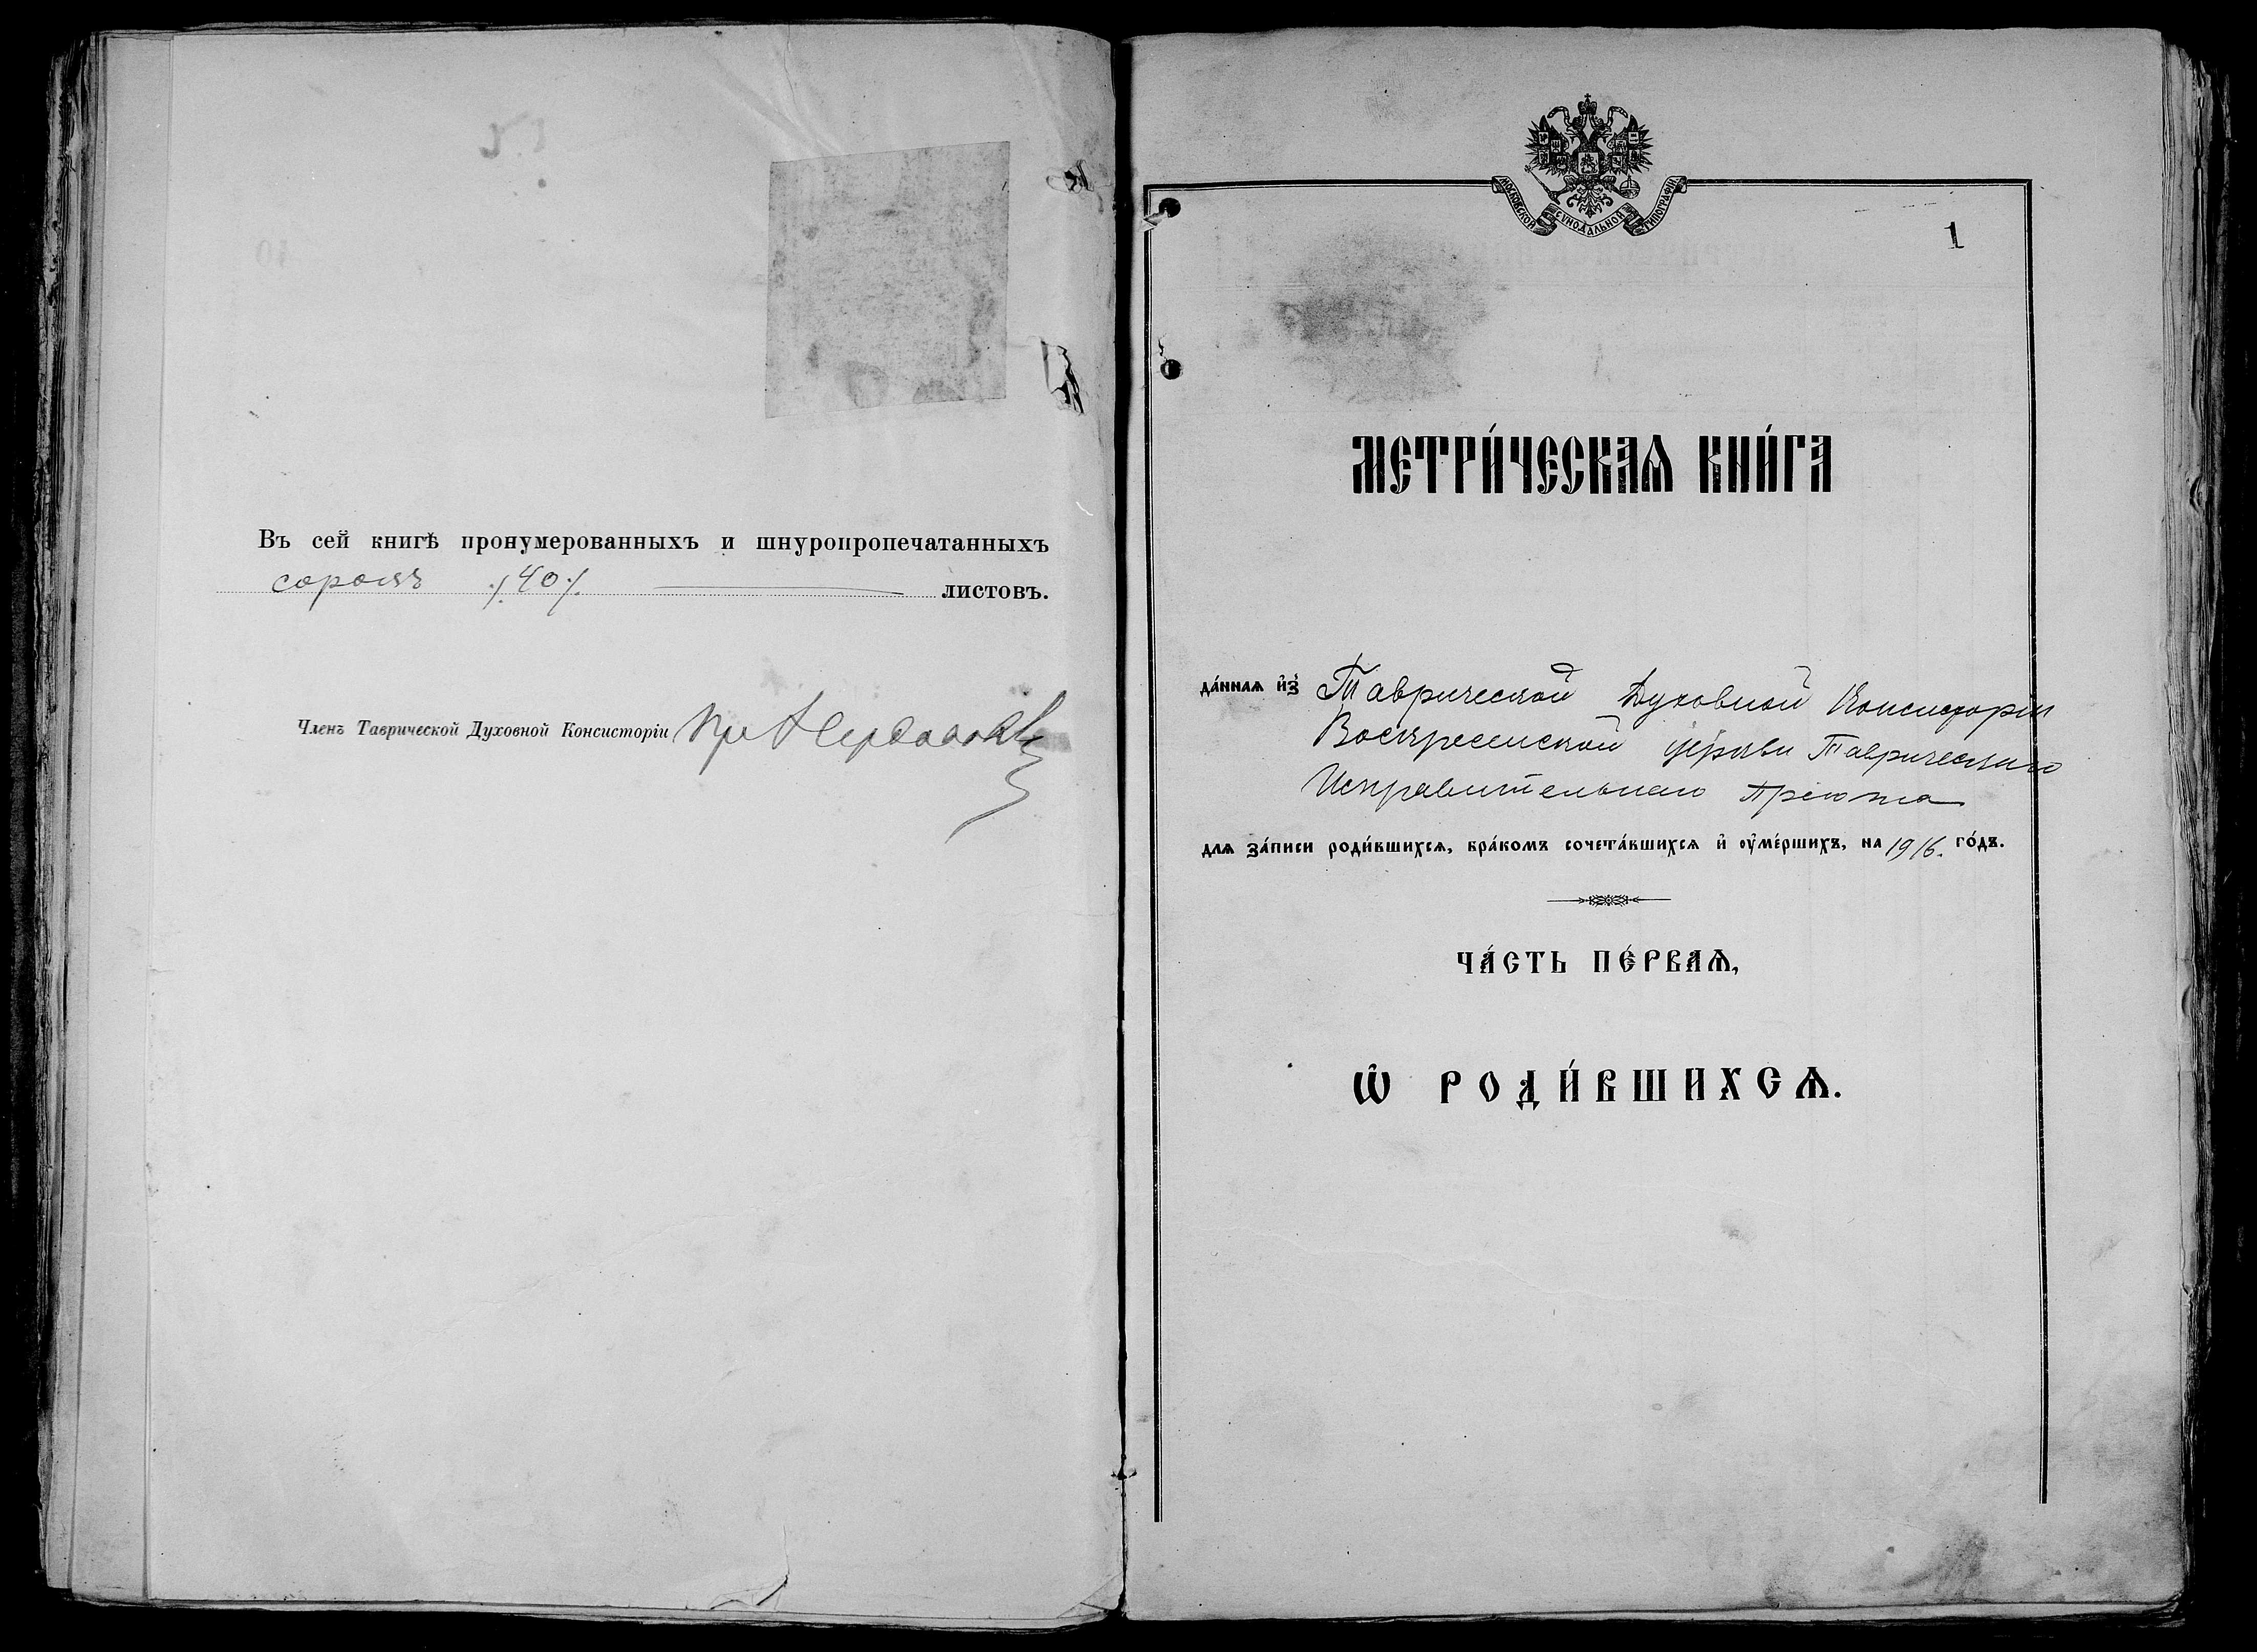 Въ сей книгѣ пронумерованныхъ и шнуропропечатанныхъ
сорокъ ./.40./. листовъ.
Членъ Таврической Духовной Консисторіи
МОСКОВСКОЙ СѴНОДАЛЬНОЙ ТИПОГРАФІИ
1
МЕТРИ́ЧЕСКАѦ КНИ́ГА
да́ннаѧ и҆з̾ Таврической Духовной Консисторіи
Воскресенской церкви Таврическаго
Исправительнаго Пріюта
для за́писи роди́вшихсѧ, бра́комъ сочета́вшихсѧ и҆ ᲂу҆ме́ршихъ, на 1916. го́дъ.
ЧА́СТЬ ПЕ́РВАѦ,
Ѡ҆ РОДИ́ВШИХСѦ.